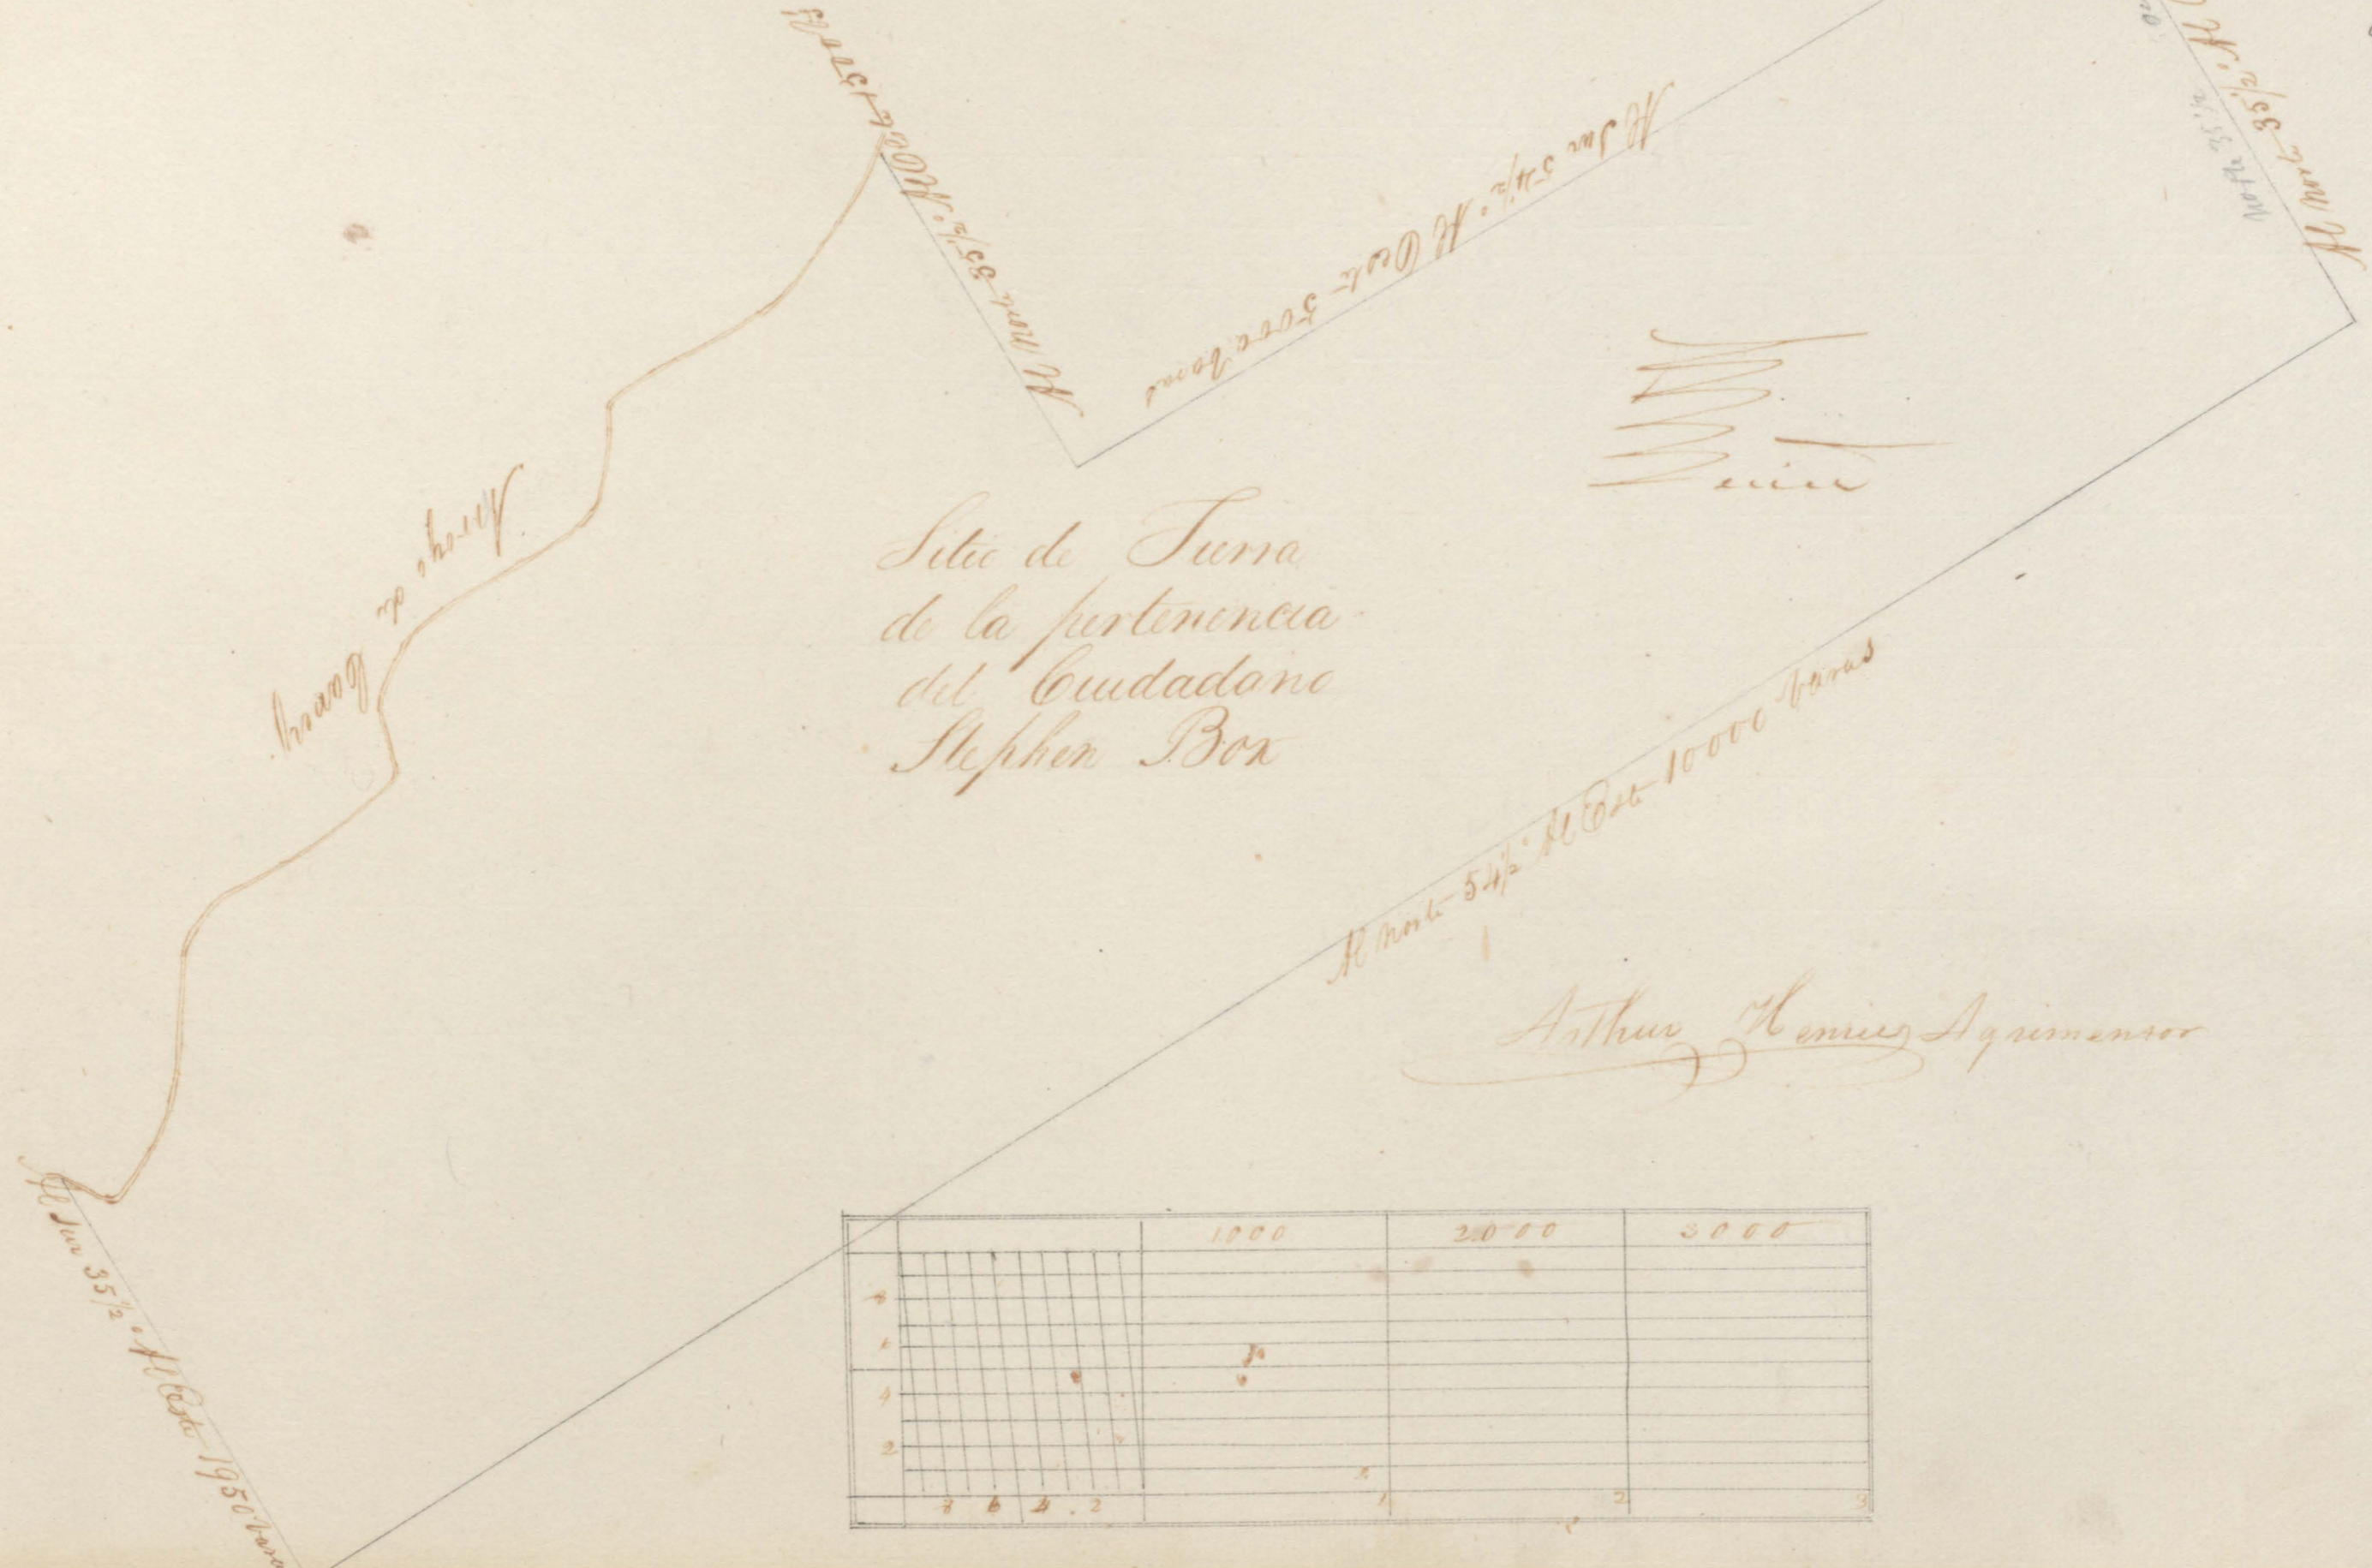 Al norte 35½° Al Oeste
Al Sur 54½° Al Oeste 5000 baras
Al norte 35½° Al
North 35½
Arroyo de
Sitio de Tierra
de la pertenencia
del Ciudadano
Stephen Box
Al norte 54½° Al Este 10000 baras
Arthur Henrie Agrimensor
Al Sur 35½° Al Este 1950 baras
1000 2000 3000
8
6
4
2
8 6 4 2 1 2 3